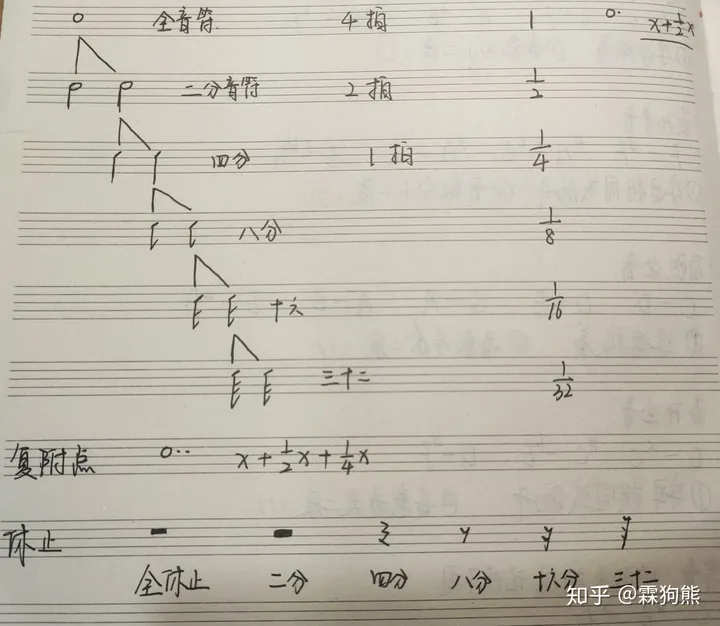 全音符 4拍 1 o· x+½x
二分音符 2拍 1/2
四分 1拍 1/4
八分 1/8
十六 1/16
三十二 1/32
复附点 o·· x+½x+¼x
休止
全休止 二分 四分 八分 十六分 三十二
知乎 @霖狗熊